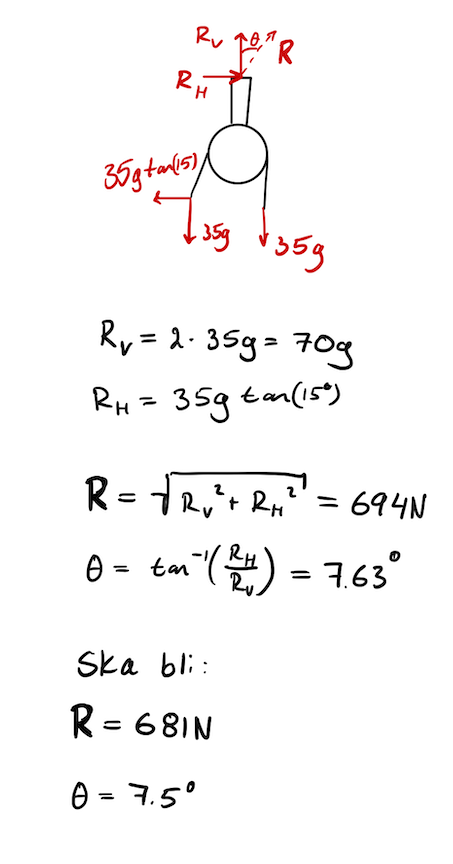 R_V θ R
R_H
35g tan(15)
35g 35g
R_V = 2 · 35g = 70g
R_H = 35g tan(15°)
R = √(R_V² + R_H²) = 694N
θ = tan⁻¹(R_H/R_V) = 7.63°
Ska bli:
R = 681N
θ = 7.5°